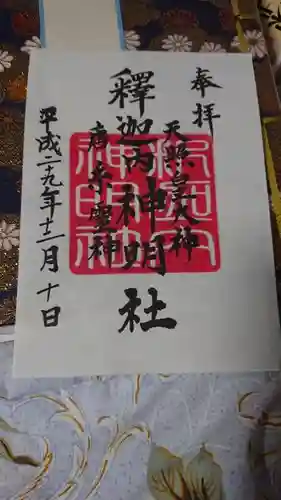 奉拝
天照皇大神
釋迦内神明社
唐糸霊神
平成二十九年十二月十日
神明社